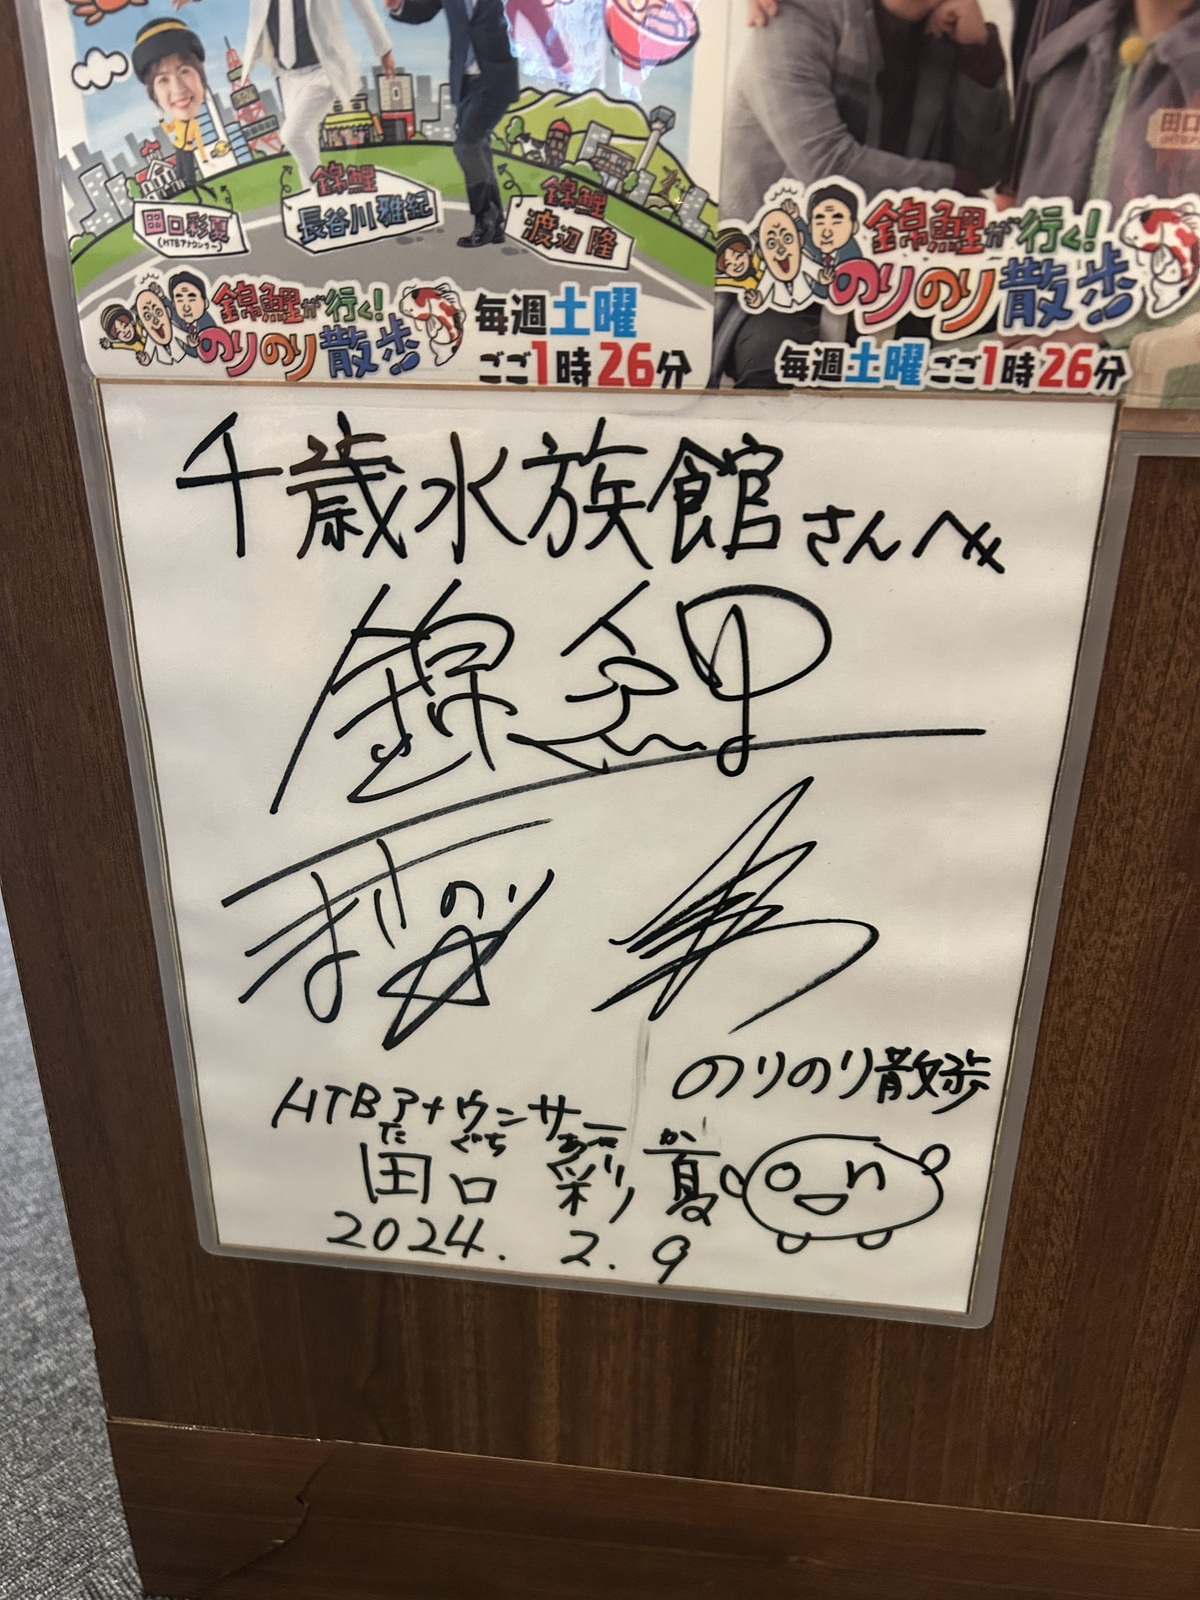 田口彩夏
(HTBアナウンサー)
錦鯉
長谷川雅紀
錦鯉
渡辺 隆
錦鯉が行く!
のりのり散歩
毎週土曜
ごご1時26分
田口
錦鯉が行く!
のりのり散歩
毎週土曜 ごご1時26分
千歳水族館さんへ
錦鯉
まさのり
のりのり散歩
HTBアナウンサー
たぐち あやか
田口 彩夏
2024. 2. 9